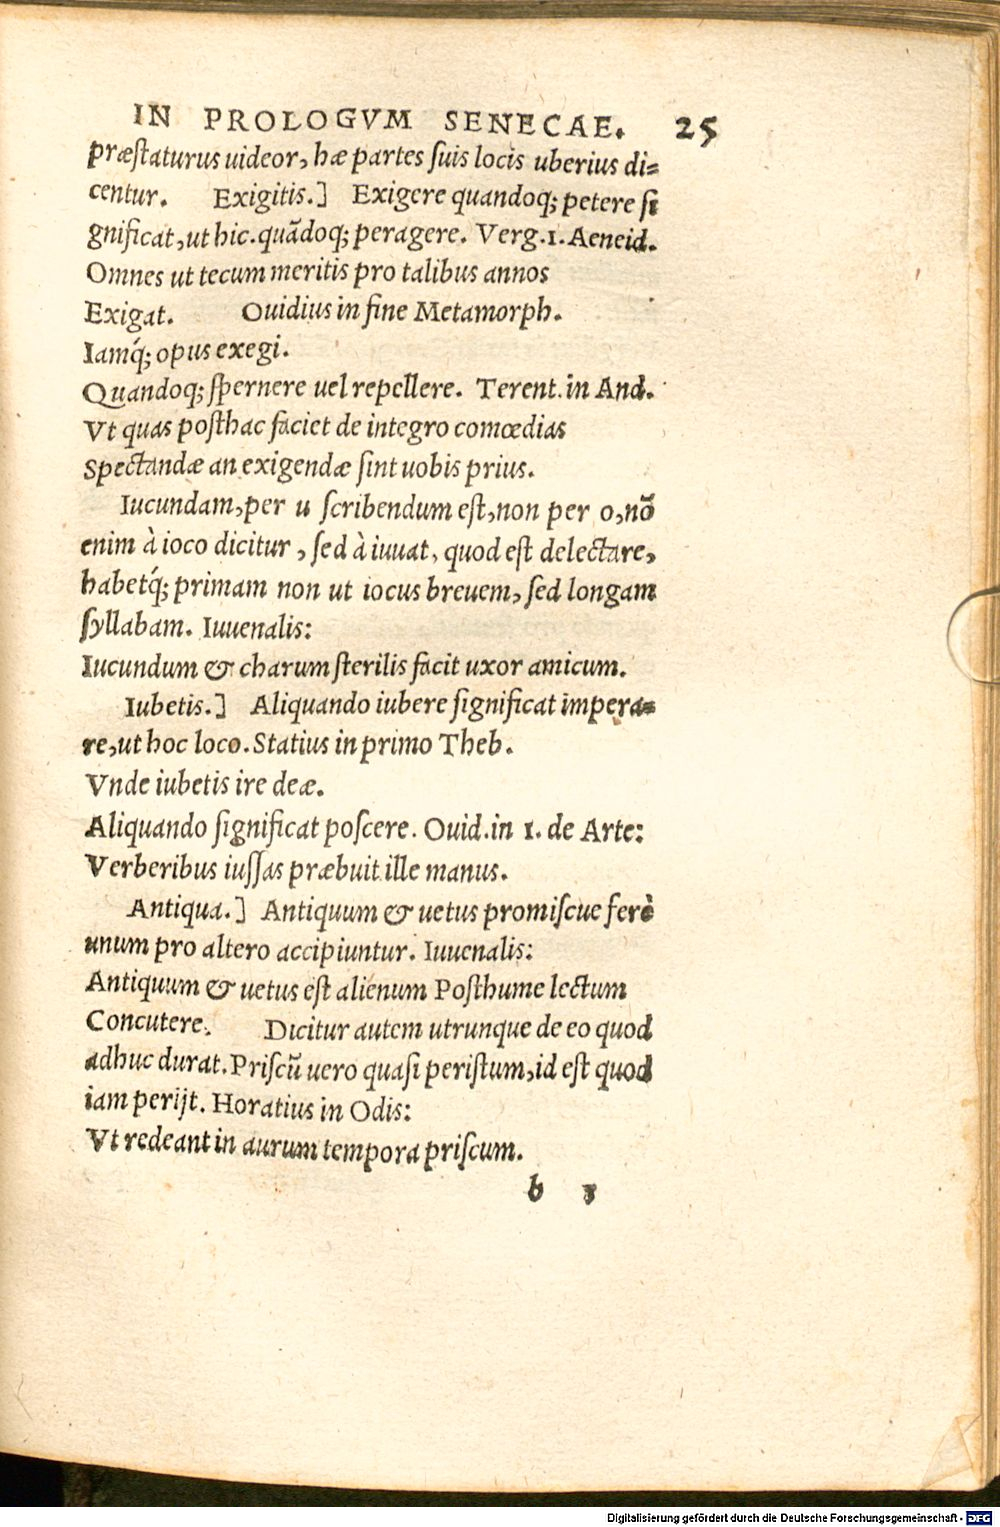 IN PROLOGVM SENECAE. 25
præſtaturus uideor, hæ partes ſuis locis uberius di=
centur. Exigitis.] Exigere quandoq; petere ſi
gnificat, ut hic. quãdoq; peragere. Verg. 1. Aeneid.
Omnes ut tecum meritis pro talibus annos
Exigat. Ouidius in fine Metamorph.
Iamq́; opus exegi.
Quandoq; ſpernere uel repellere. Terent. in And.
Vt quas poſthac faciet de integro comœdias
Spectandæ an exigendæ ſint uobis prius.
Iucundam, per u ſcribendum eſt, non per o, nõ
enim à ioco dicitur, ſed à iuuat, quod eſt delectare,
habetq́; primam non ut iocus breuem, ſed longam
ſyllabam. Iuuenalis:
Iucundum & charum ſterilis facit uxor amicum.
Iubetis.] Aliquando iubere ſignificat impera=
re, ut hoc loco. Statius in primo Theb.
Vnde iubetis ire deæ.
Aliquando ſignificat poſcere. Ouid. in 1. de Arte:
Verberibus iuſſas præbuit ille manus.
Antiqua.] Antiquum & uetus promiſcue ferè
unum pro altero accipiuntur. Iuuenalis:
Antiquum & uetus eſt alienum Poſthume lectum
Concutere. Dicitur autem utrunque de eo quod
adhuc durat. Priſcũ uero quaſi periſtum, id eſt quod
iam perijt. Horatius in Odis:
Vt redeant in aurum tempora priſcum.
b 5
Digitalisierung gefördert durch die Deutsche Forschungsgemeinschaft - DFG